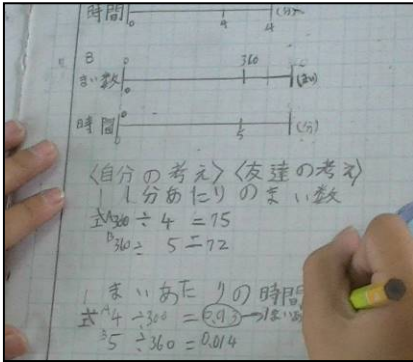 時間 0 4 (分)
B
まい数 0 360 (まい)
時間 0 5 (分)
〈自分の考え〉〈友達の考え〉
1分あたりのまい数
式 A 300 ÷ 4 = 75
B 360 ÷ 5 = 72
1まいあたりの時間
式 A 4 ÷ 300 = 0.013 → 1まいあ
B 5 ÷ 360 = 0.014